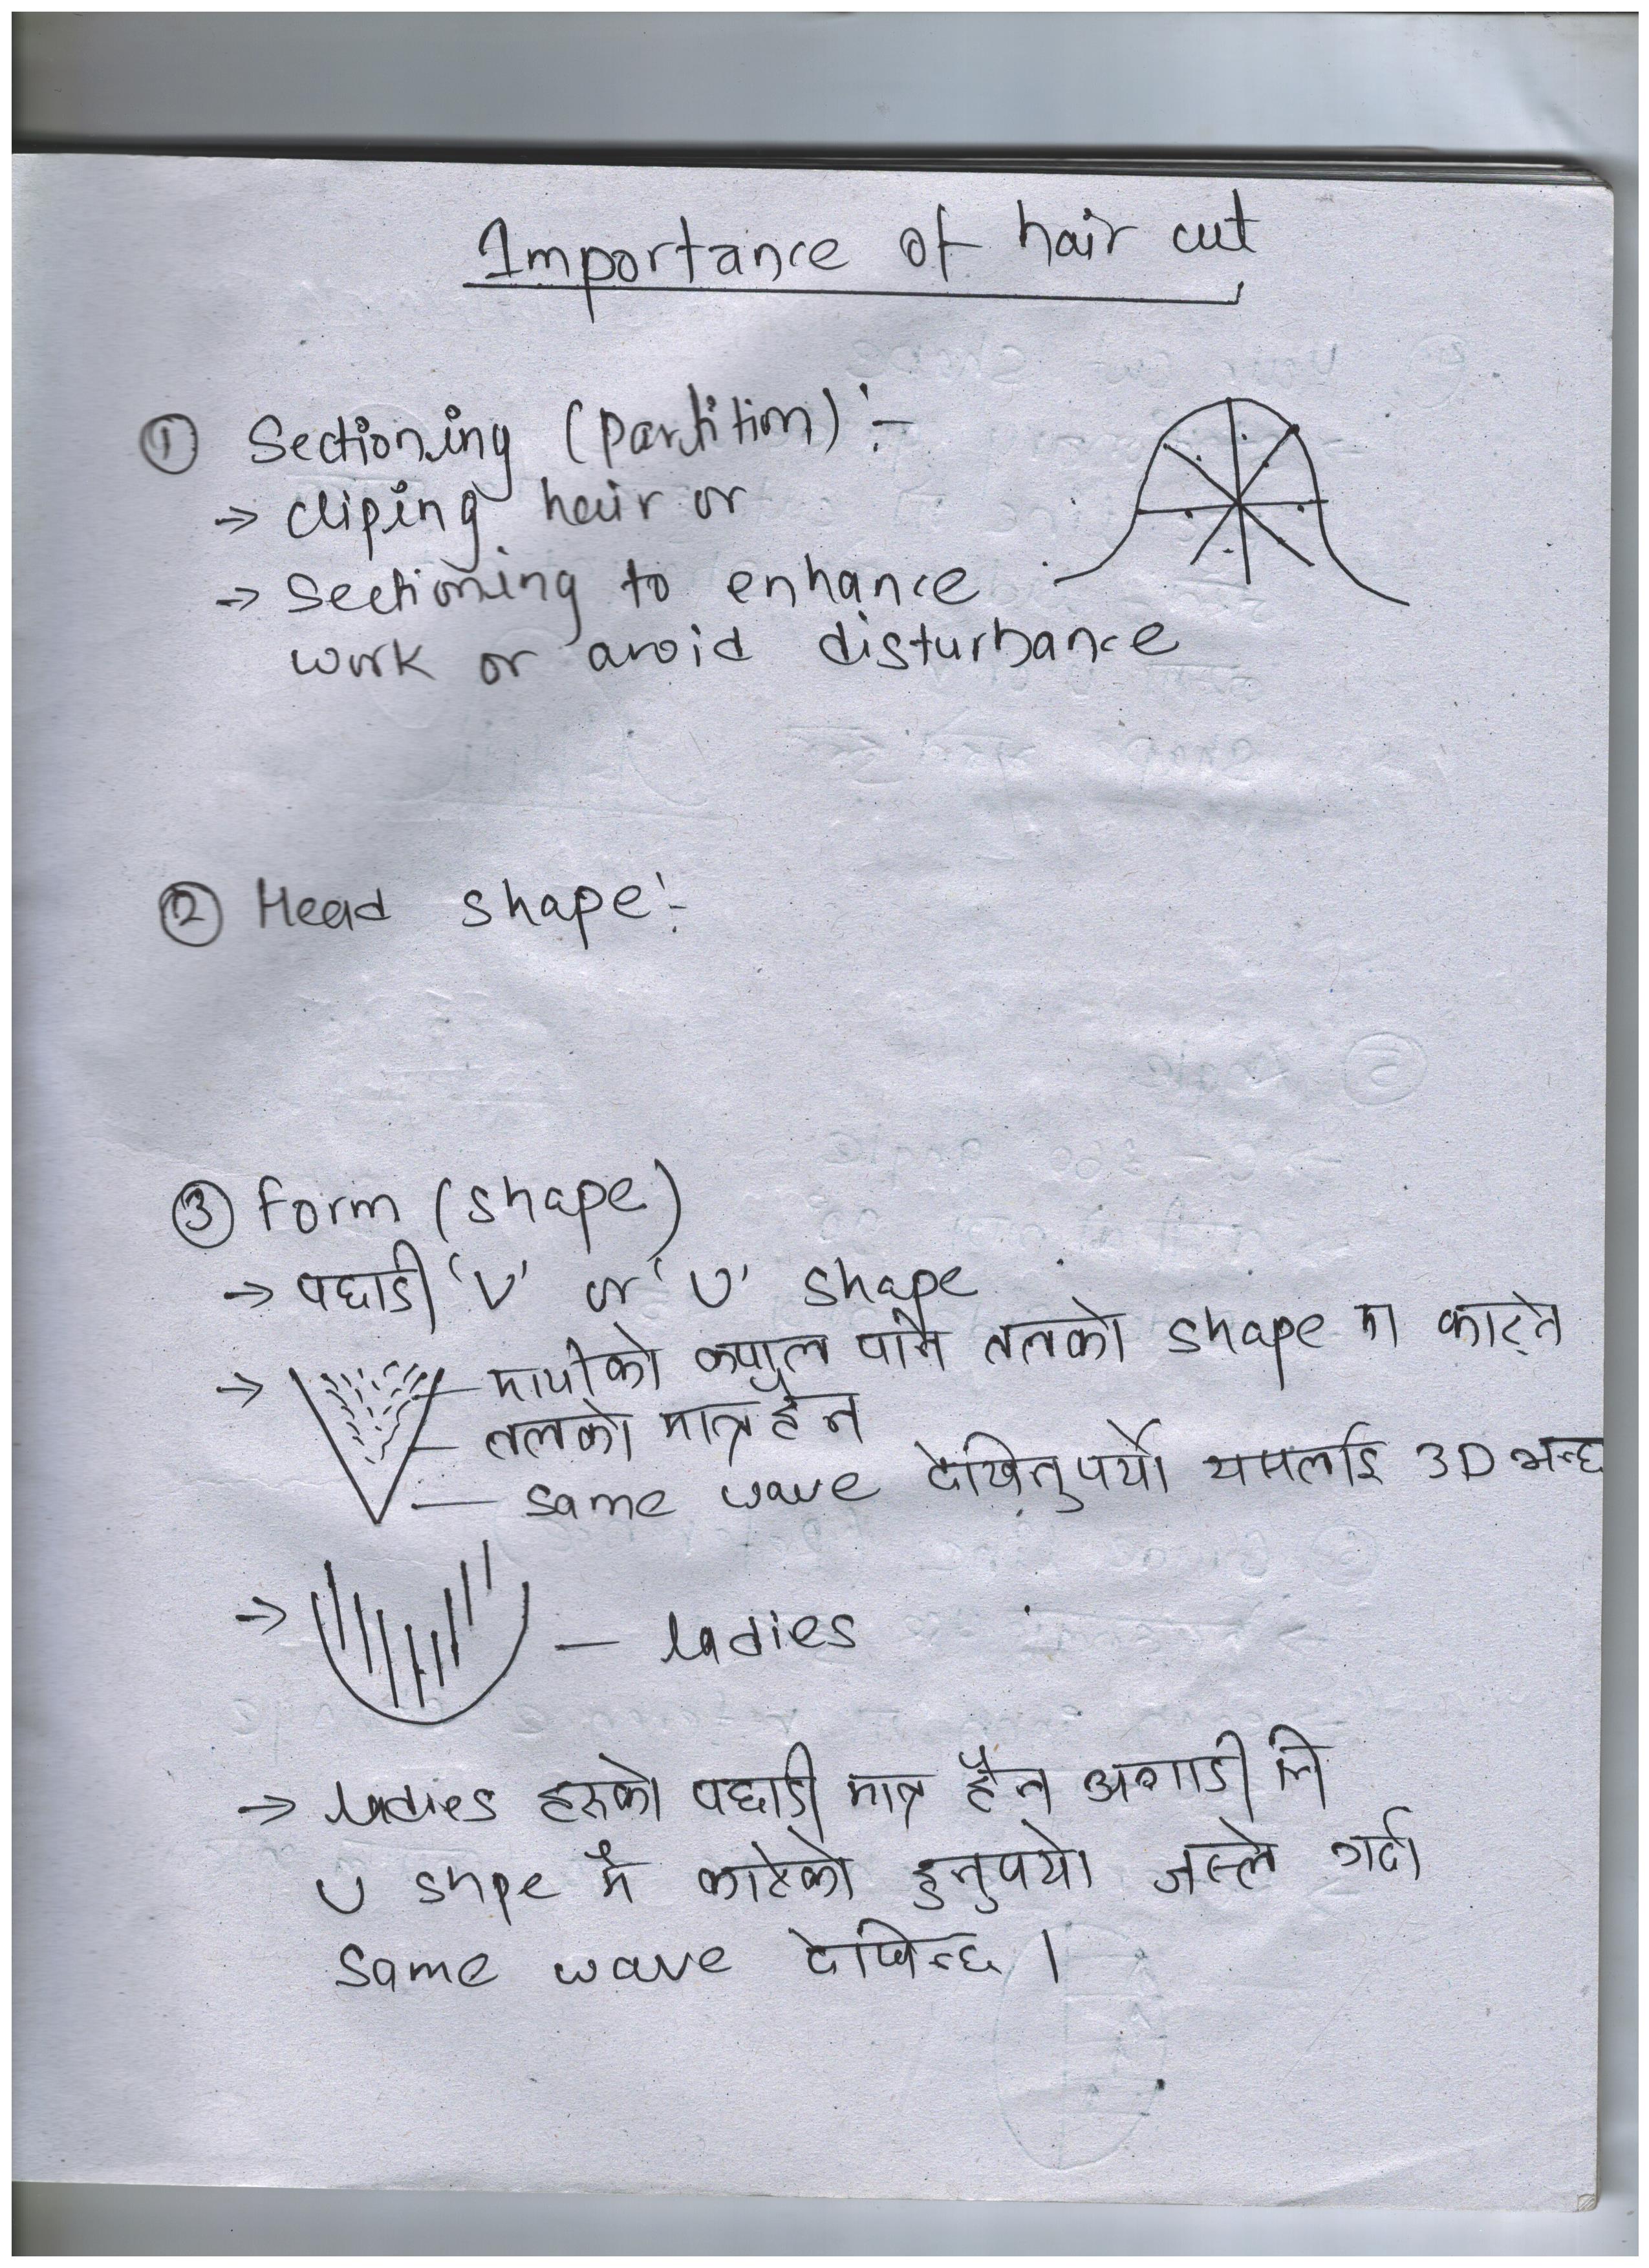 Importance of hair cut
① Sectioning (Partition) :-
→ cliping hair or
→ Sectioning to enhance
work or avoid disturbance
② Head shape :-
③ Form (shape)
→ पछाडी 'V' or 'U' shape
→ — माथीको कपाल पनि तलको shape मा काट्ने
— तलको मात्र हैन
— same wave देखिनुपर्यो यसलाई 3D भन्छ
→ — ladies
→ ladies हरुको पछाडी मात्र हैन अगाडी नि
U shpe मै काटेको हुनुपर्यो जस्ले गर्दा
same wave देखिन्छ ।